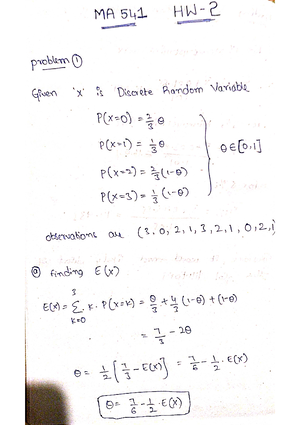 MA 541 HW-2
problem ①
Given 'x' is Discrete Random Variable
P(x=0) = 2/3 θ
P(x=1) = 1/3 θ
P(x=2) = 2/3 (1-θ)
P(x=3) = 1/3 (1-θ)
θ∈[0,1]
observations are (3,0,2,1,3,2,1,0,2,1)
ⓐ finding E(x)
E(x) = 3 Σ k=0 k. P(x=k) = θ/3 + 4/3 (1-θ) + (1-θ)
= 7/3 - 2θ
θ = 1/2 [7/3 - E(x)] = 7/6 - 1/2 . E(x)
θ = 7/6 - 1/2 . E(x)